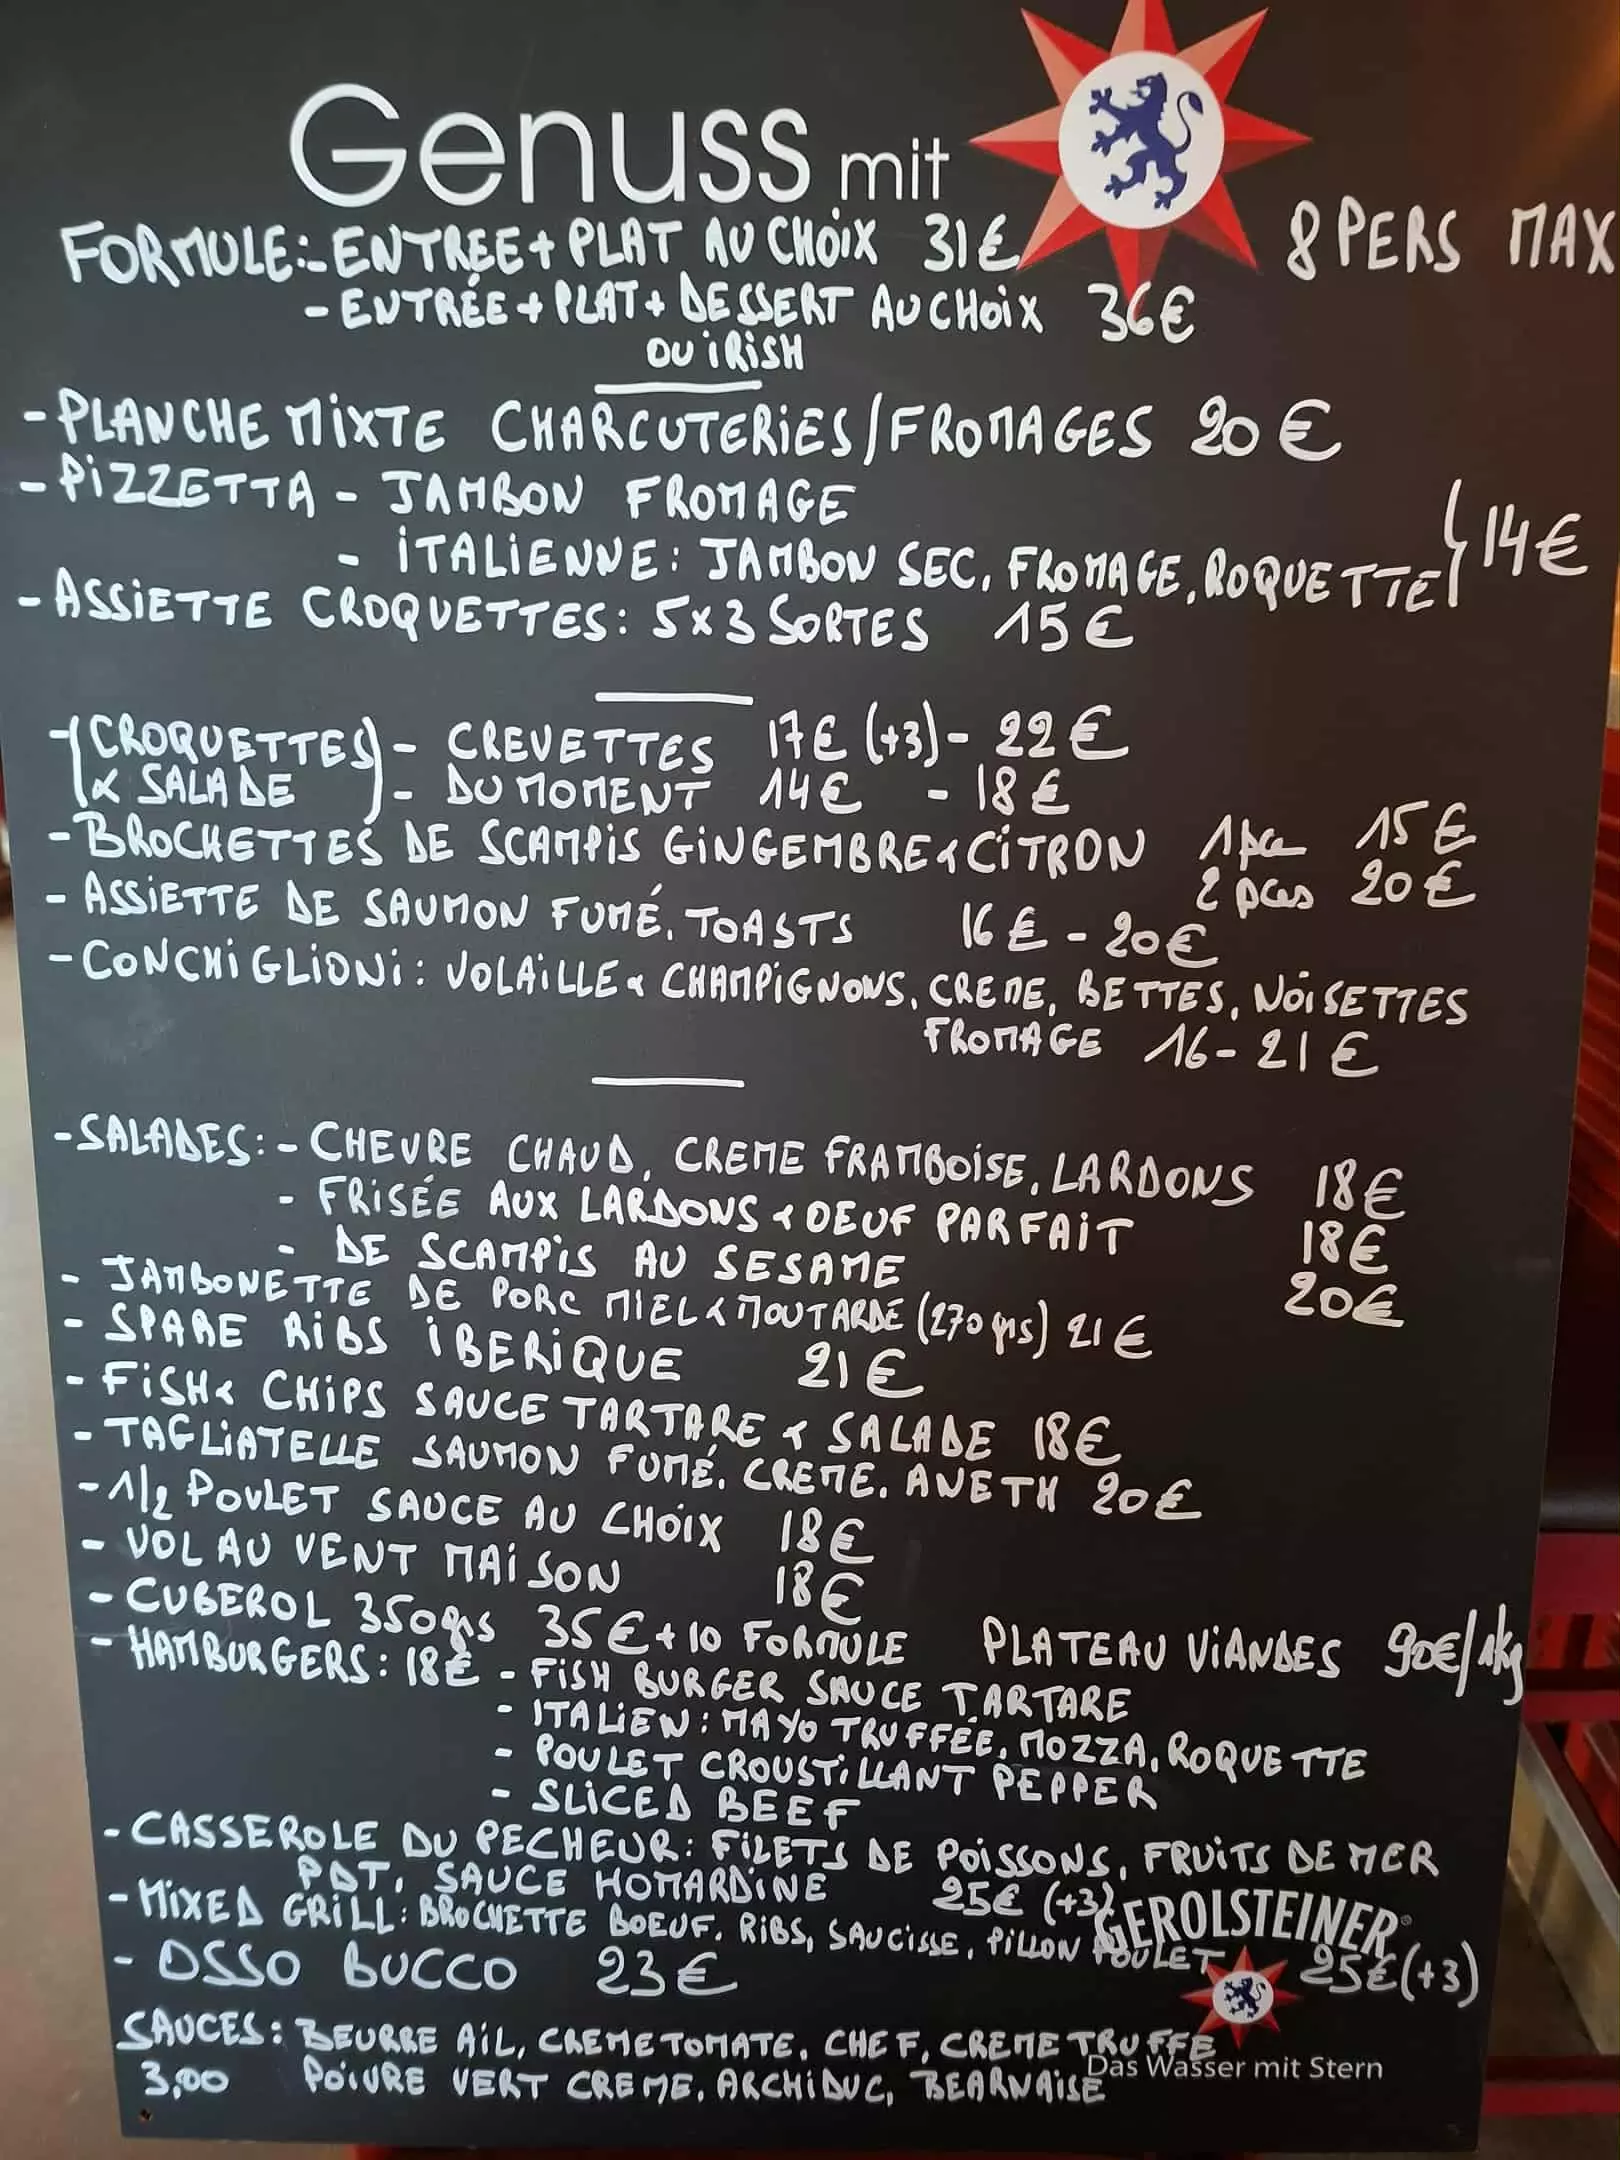 Genuss mit
FORMULE:- ENTREE + PLAT AU CHOIX 31€ 8 PERS MAX
- ENTRÉE + PLAT + DESSERT AU CHOIX 36€
OU IRISH
- PLANCHE MIXTE CHARCUTERIES/FROMAGES 20€
- PIZZETTA - JAMBON FROMAGE
- ITALIENNE: JAMBON SEC, FROMAGE, ROQUETTE } 14€
- ASSIETTE CROQUETTES: 5x3 SORTES 15€
- (CROQUETTES) - CREVETTES 17€ (+3) - 22€
(& SALADE) - DU MOMENT 14€ - 18€
- BROCHETTES DE SCAMPIS GINGEMBRE & CITRON 1 pce 15€
2 pces 20€
- ASSIETTE DE SAUMON FUMÉ, TOASTS 16€ - 20€
- CONCHIGLIONI: VOLAILLE & CHAMPIGNONS, CREME, BETTES, NOISETTES
FROMAGE 16-21€
- SALADES: - CHEVRE CHAUD, CREME FRAMBOISE, LARDONS 18€
- FRISÉE AUX LARDONS & OEUF PARFAIT 18€
- DE SCAMPIS AU SESAME 20€
- JAMBONETTE DE PORC MIEL & MOUTARDE (270 grs) 21€
- SPARE RIBS IBERIQUE 21€
- FISH & CHIPS SAUCE TARTARE & SALADE 18€
- TAGLIATELLE SAUMON FUMÉ, CREME, ANETH 20€
- 1/2 POULET SAUCE AU CHOIX 18€
- VOL AU VENT MAISON 18€
- CUBEROL 350grs 35€ + 10 FORMULE PLATEAU VIANDES 90€/1kg
- HAMBURGERS: 18€ - FISH BURGER SAUCE TARTARE
- ITALIEN: MAYO TRUFFÉE, MOZZA, ROQUETTE
- POULET CROUSTILLANT PEPPER
- SLICED BEEF
- CASSEROLE DU PECHEUR: FILETS DE POISSONS, FRUITS DE MER
PDT, SAUCE HOMARDINE 25€ (+3)
- MIXED GRILL: BROCHETTE BOEUF, RIBS, SAUCISSE, PILLON POULET 25€ (+3)
GEROLSTEINER®
- OSSO BUCCO 23€
SAUCES: BEURRE AIL, CREME TOMATE, CHEF, CREME TRUFFE
3,00 POIVRE VERT CREME, ARCHIDUC, BEARNAISE
Das Wasser mit Stern